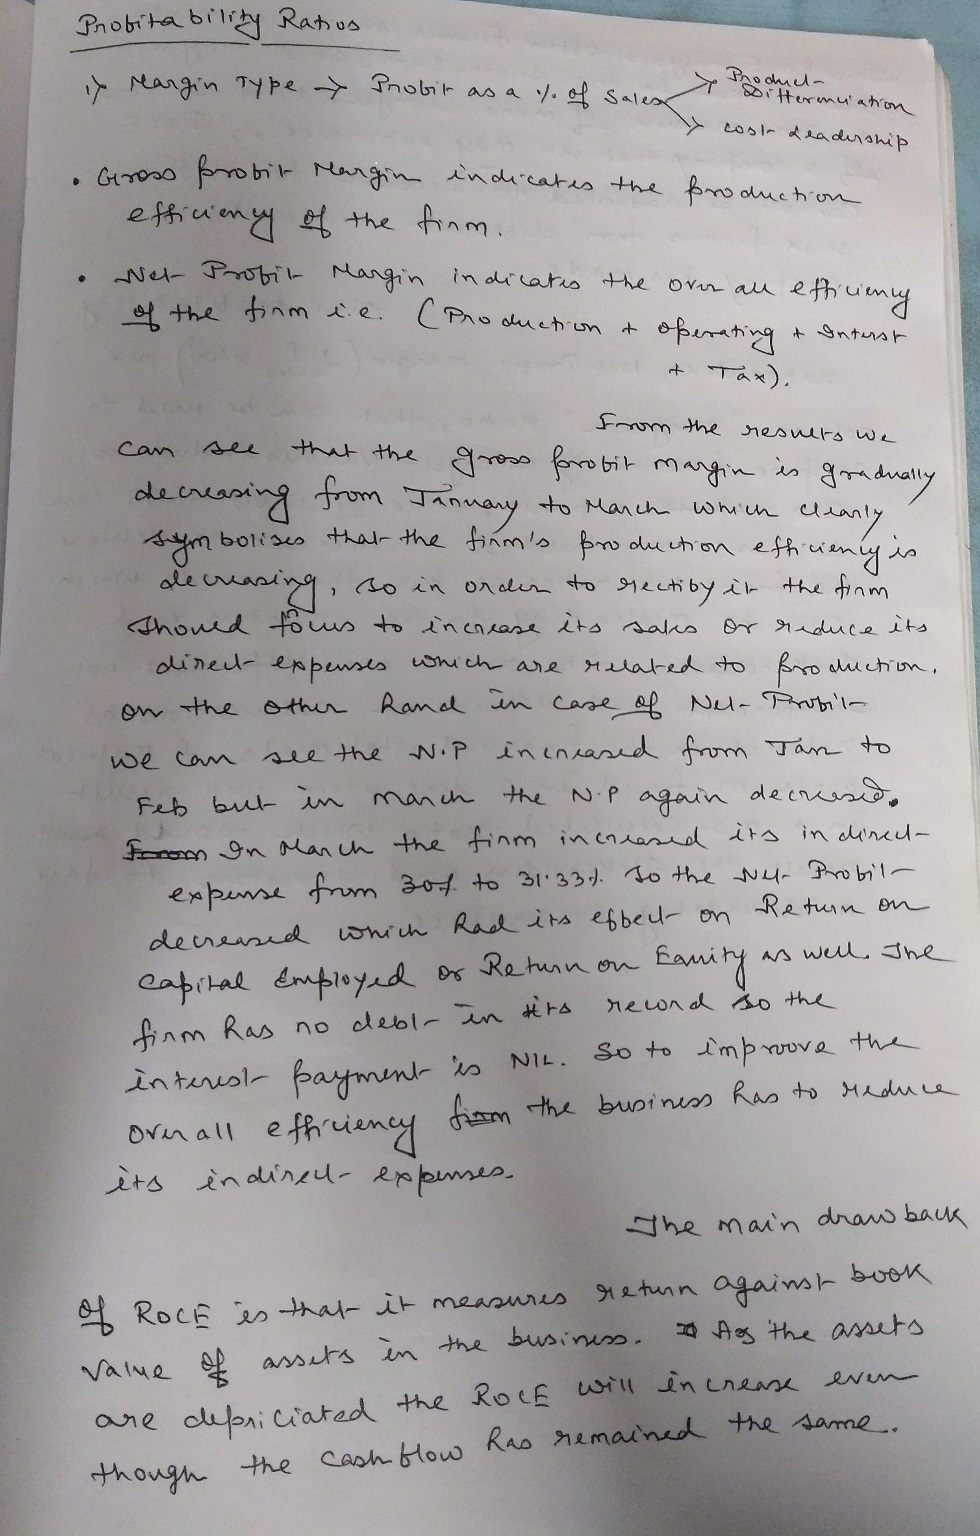 Profitability Ratios
1) Margin Type → Profit as a % of Sales → Product Differenciation
→ cost leadership
• Gross profit Margin indicates the production
efficiency of the firm.
• Net Profit Margin indicates the over all efficiency
of the firm i.e. (Production + operating + Interest
+ Tax).
From the results we
can see that the gross profit margin is gradually
decreasing from January to March which clearly
symbolises that the firm's production efficiency is
decreasing, so in order to rectify it the firm
should focus to increase its sales or reduce its
direct expenses which are related to production.
on the other hand in case of Net Profit
we can see the N.P increased from Jan to
Feb but in march the N.P again decreased.
From In March the firm increased its indirect
expense from 30% to 31.33% so the Net Profit
decreased which had its effect on Return on
Capital Employed or Return on Equity as well. The
firm has no debt in its record so the
interest payment is NIL. So to improove the
over all efficiency firm the business has to reduce
its indirect expenses.
The main drawback
of ROCE is that it measures return against book
value of assets in the business. As the assets
are depriciated the ROCE will increase even
though the cash flow has remained the same.